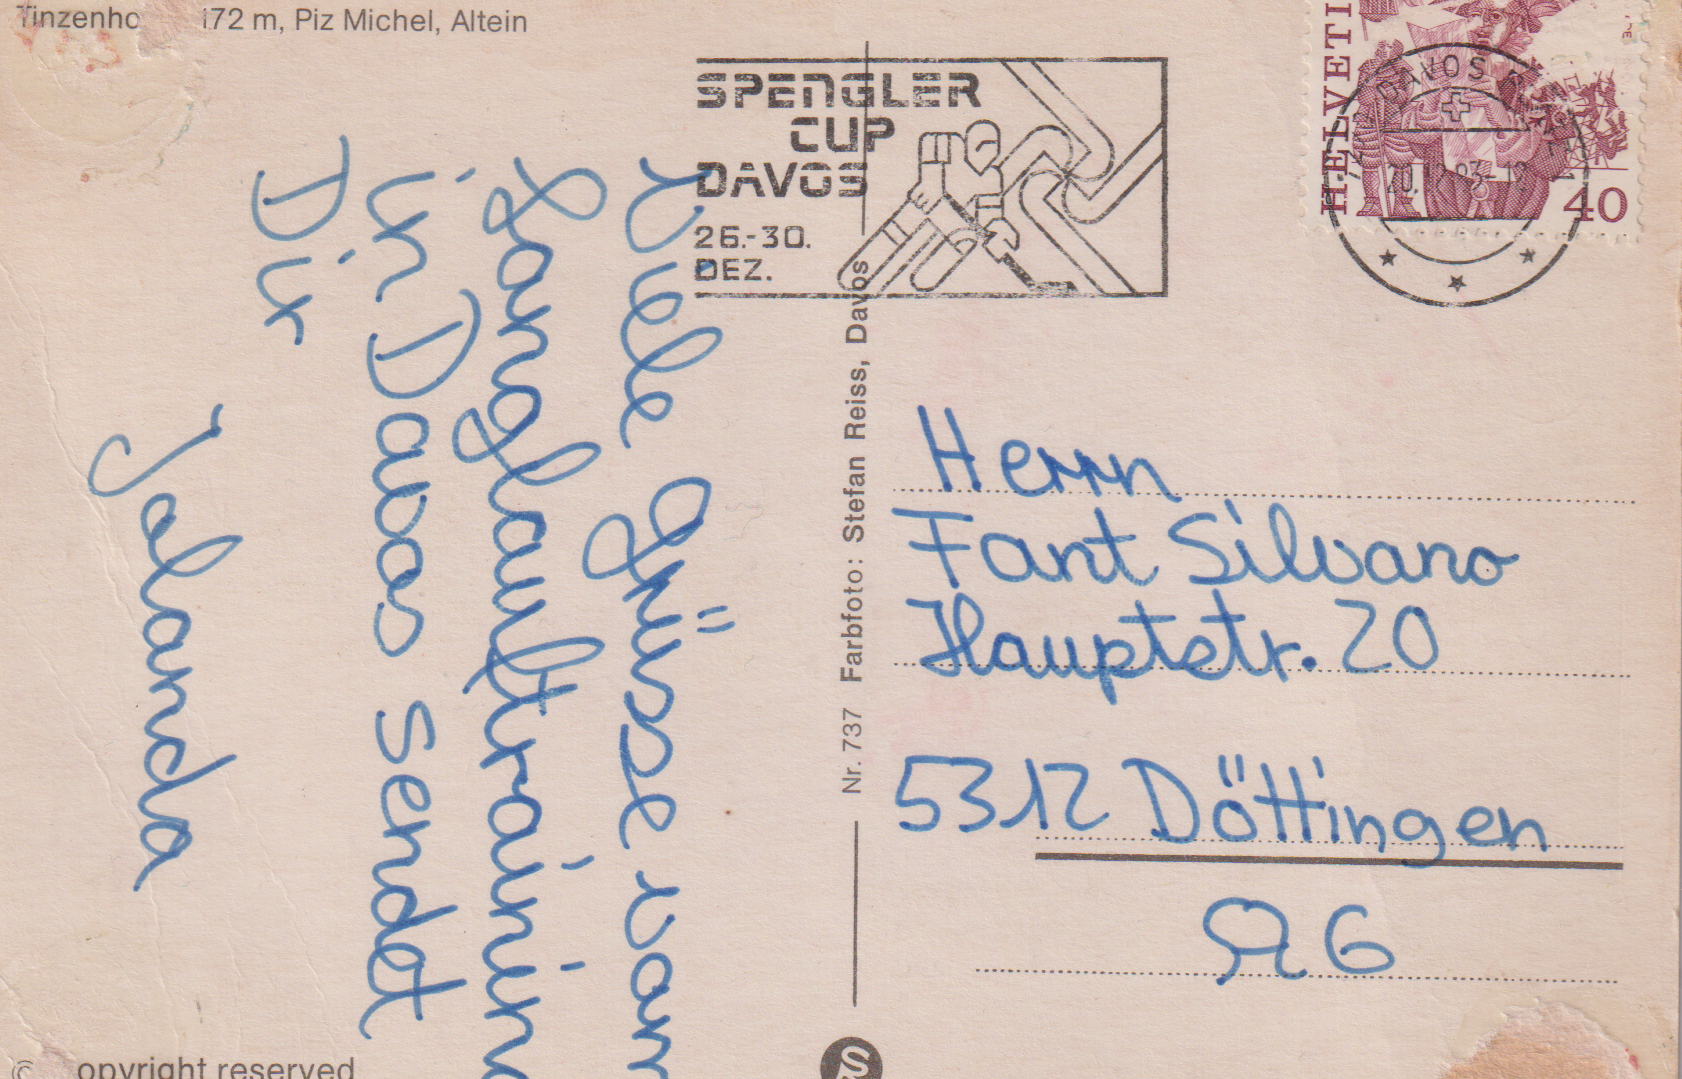 Tinzenho 172 m, Piz Michel, Altein
SPENGLER
CUP
DAVOS
26.-30.
DEZ.
HELVETI
40
DAVOS
Viele Grüsse von
Langlauftrainin
in Davos sendet
Dir
Jolanda
Nr. 737 Farbfoto: Stefan Reiss, Davos
Herrn
Fant Silvano
Hauptstr. 20
5312 Döttingen
AG
© opyright reserved
S